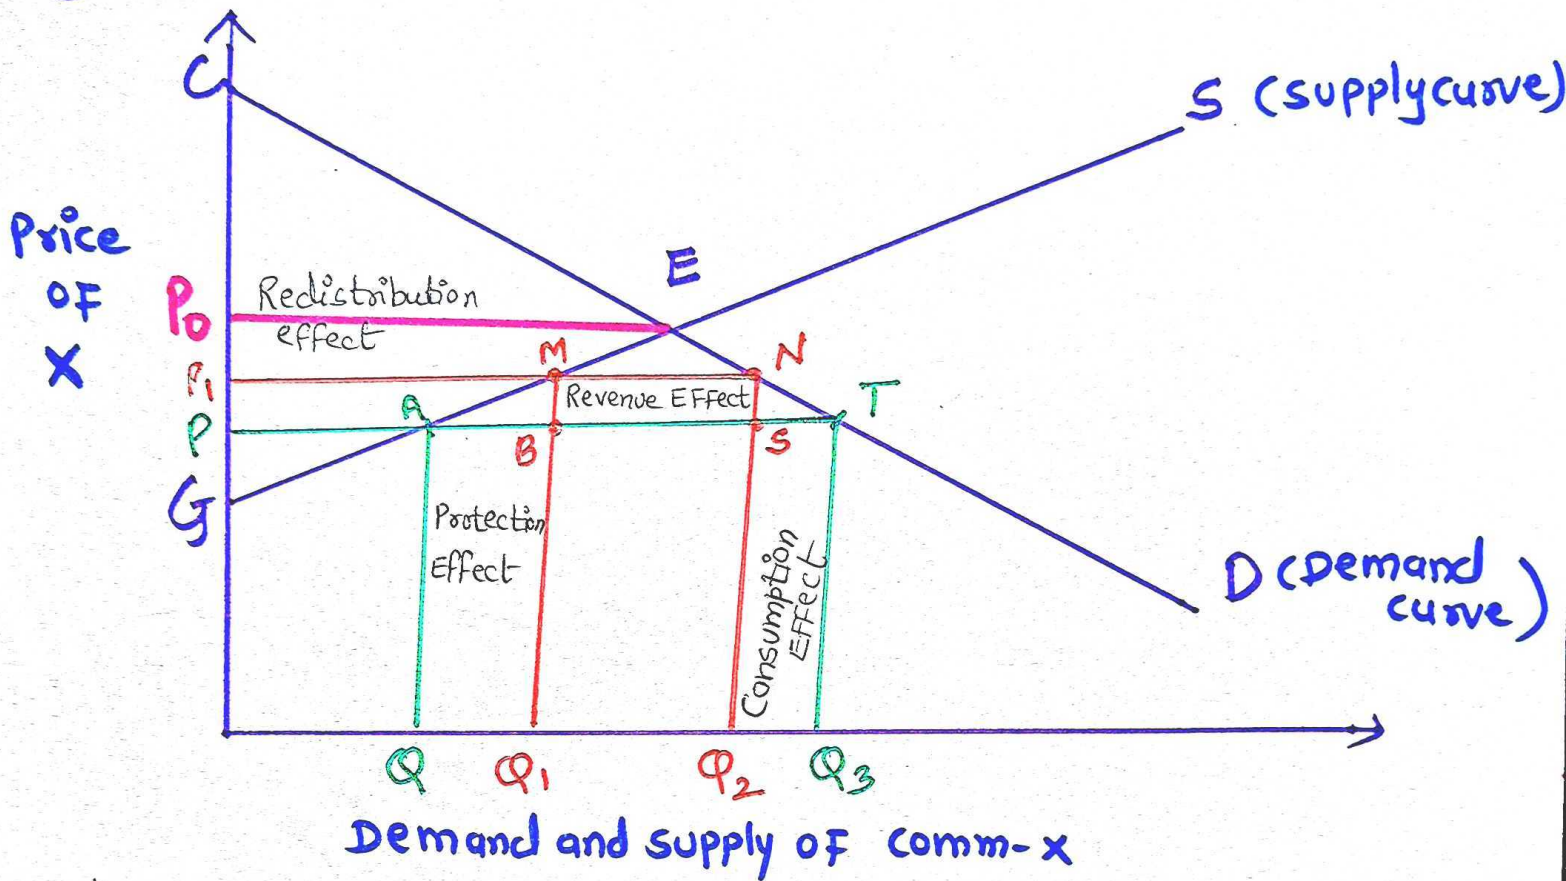 C
S (supply curve)
Price
OF
X
E
P0
Redistribution
effect
M
N
P1
Revenue EFFect
A
T
P
B
S
G
Protection
Effect
Consumption
EFFect
D (Demand
curve)
Q
Q1
Q2
Q3
Demand and supply of comm-x